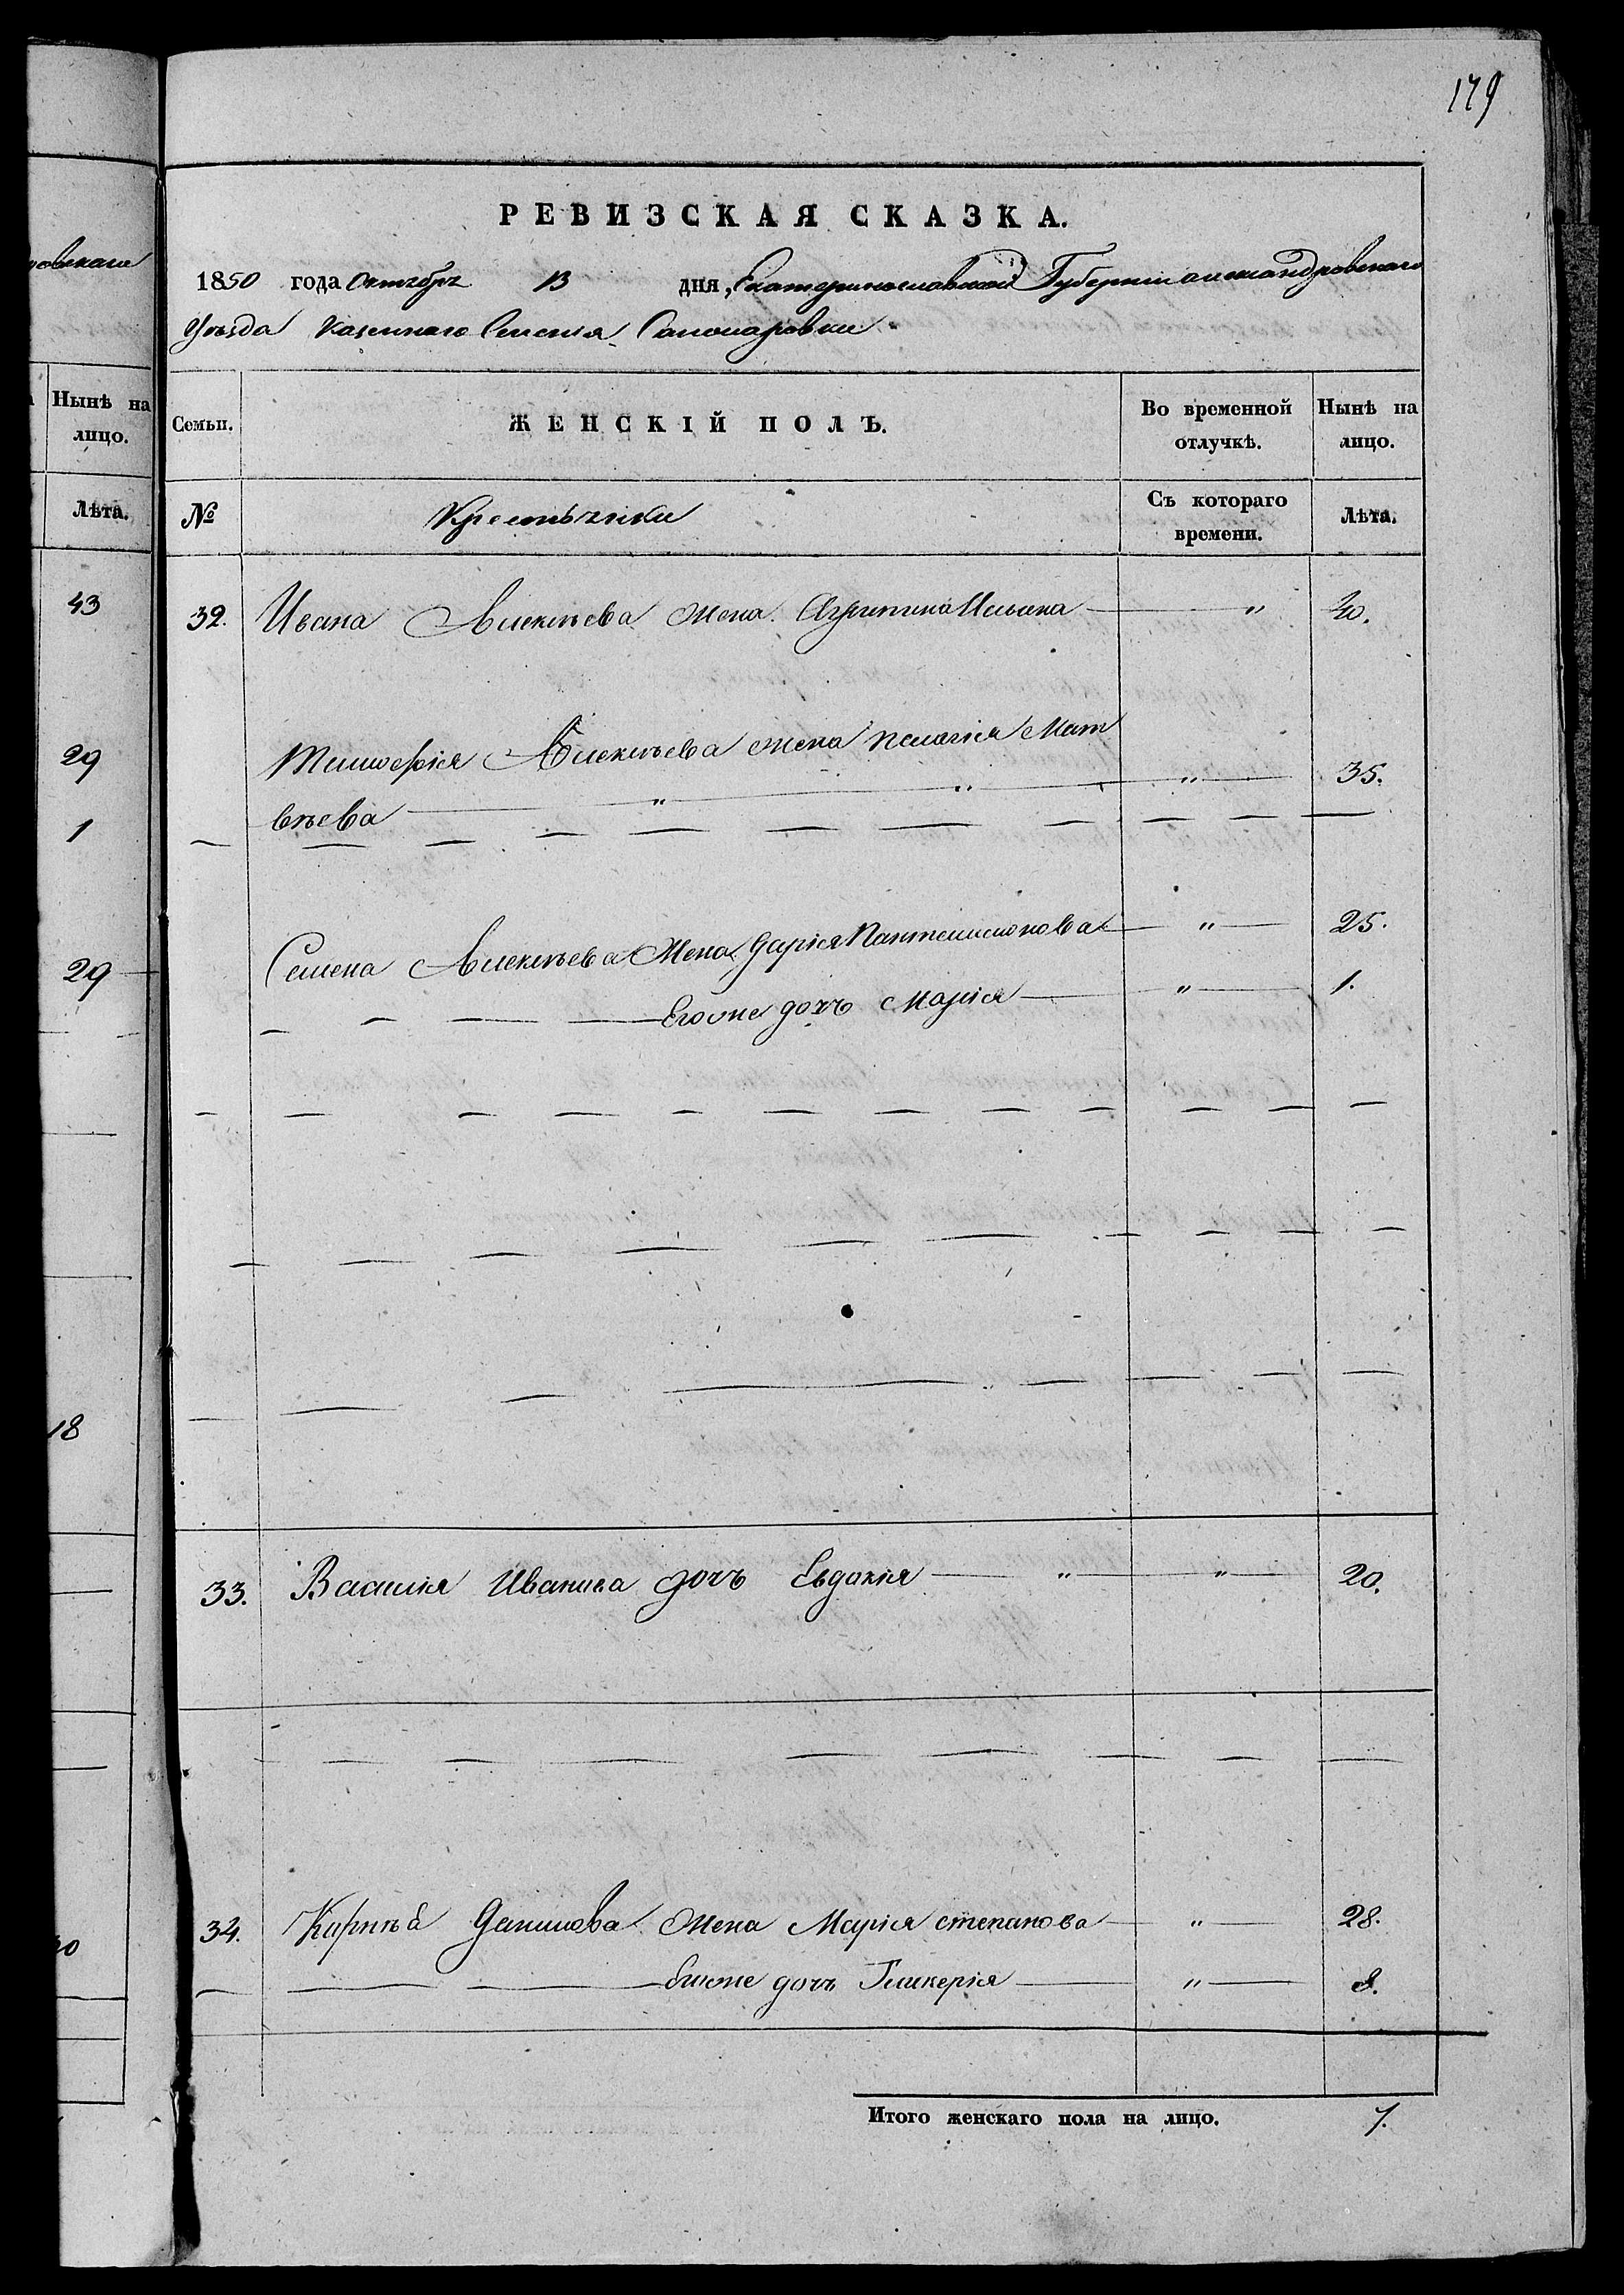 179
РЕВИЗСКАЯ СКАЗКА.
1850 года Октября 13 дня, Екатеринославской Губернии Александровскаго
Уѣзда Казеннаго Селенія
Семьи.
ЖЕНСКІЙ ПОЛЪ.
Во временной отлучкѣ.
Нынѣ на лицо.
№
Крестьянки
Съ котораго времени.
Лѣта.
32. Ивана Алексѣева жена Агрипина Ильина — " 40.
Тимофія Алексѣева жена Пелагія Мат
вѣева — " " — " — 35.
Семена Алексѣева жена Дарія Пантелимонова — " — 25.
Его же дочь Марія — " — 1.
33. Василія Иванова дочь Евдокія — " — " — 20.
34. Данилова жена Марія Степанова — " — 28.
дочь Гликерія — " — 8.
Итого женскаго пола на лицо. 7.
Нынѣ на
лицо.
Лѣта.
43
29
1
29
18